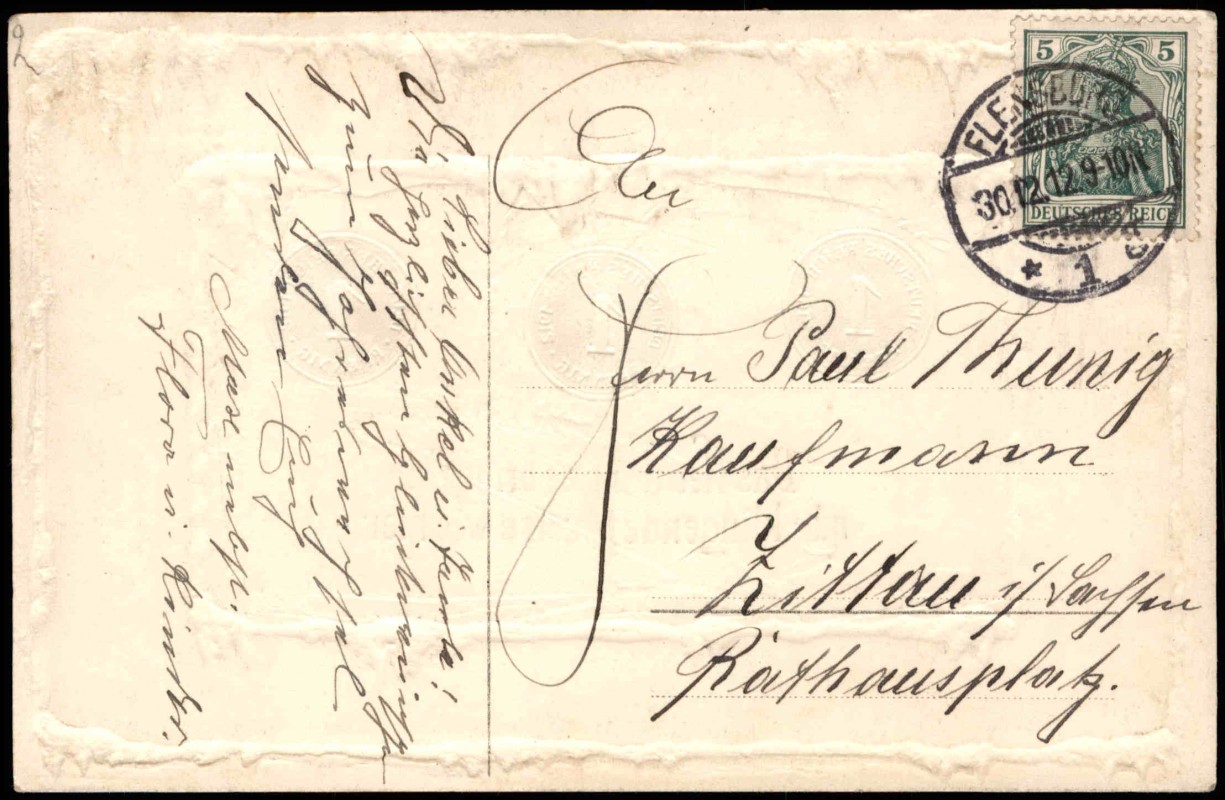 2
5 5
DEUTSCHES REICH
FLENSBURG
30.12.12.9-10N
* 1 d
An
Herrn Paul Thunig
Kaufmann
Zittau i/ Sachsen
Rathausplatz.
Lieber Onkel u. Tante!
Die herzlichsten Glückwünsche
zum Jahreswechsel
senden Euch
nebst
Flora u. Kinder.